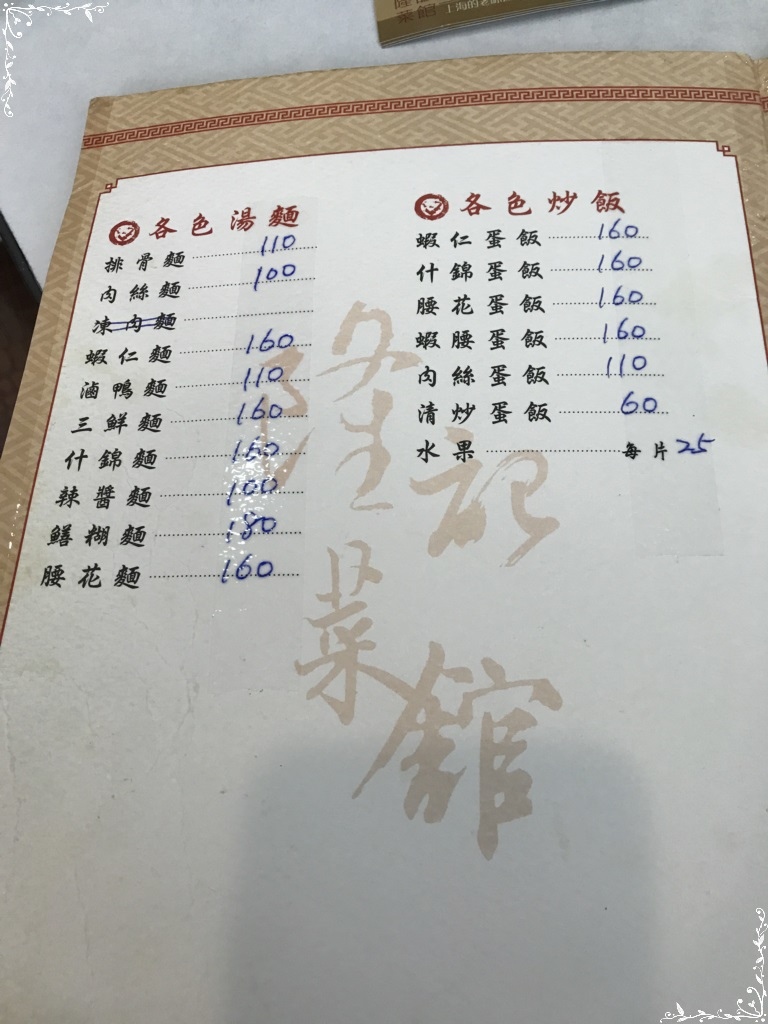 菜館 上海的老
各色湯麵
排骨麵 110
肉絲麵 100
凍肉麵
蝦仁麵 160
滷鴨麵 110
三鮮麵 160
什錦麵 160
辣醬麵 100
鱔糊麵 180
腰花麵 160
各色炒飯
蝦仁蛋飯 160
什錦蛋飯 160
腰花蛋飯 160
蝦腰蛋飯 160
肉絲蛋飯 110
清炒蛋飯 60
水果 每片 25
隆記
菜館